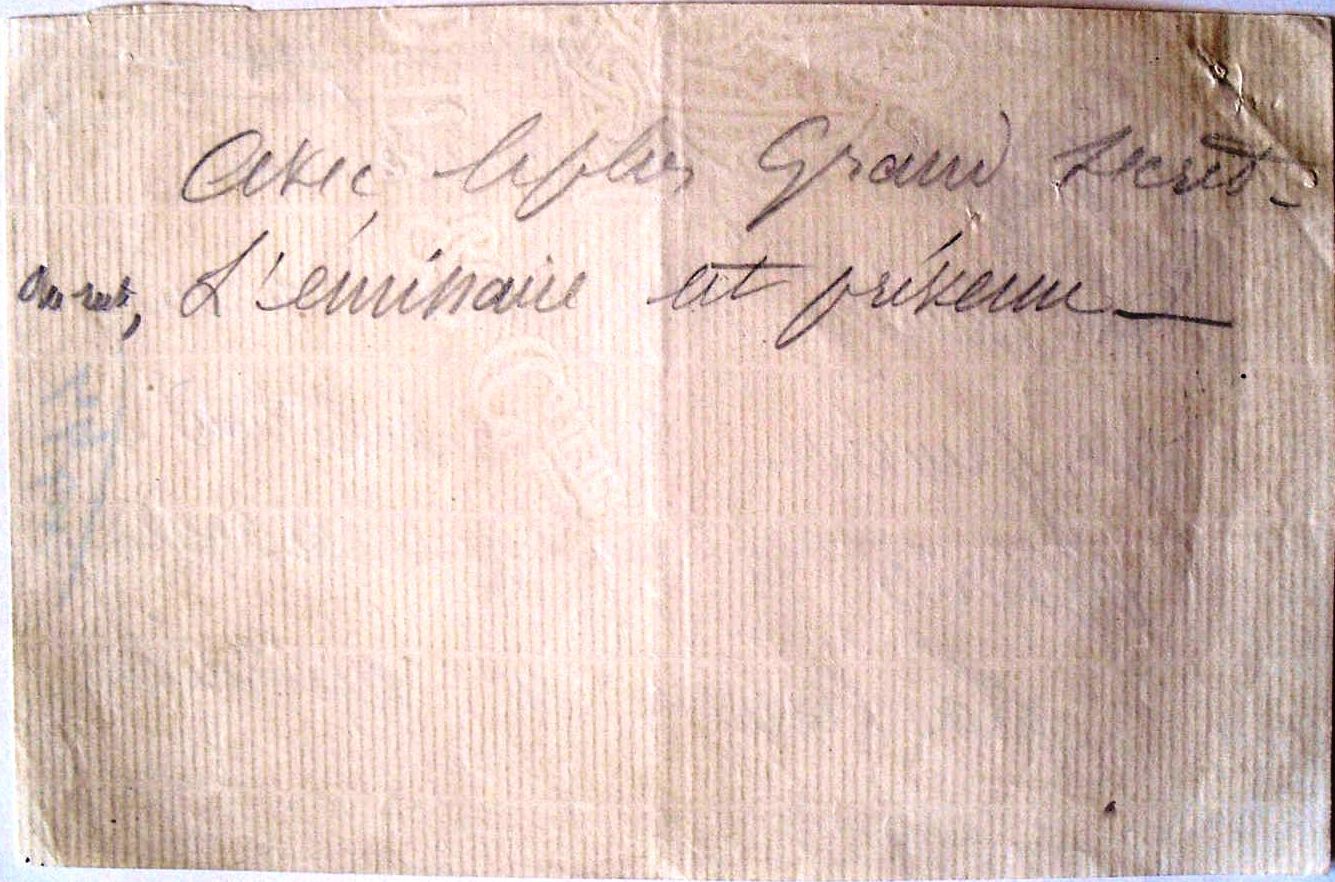 Avec le plus Grand secret.
L'émissaire est prévenu